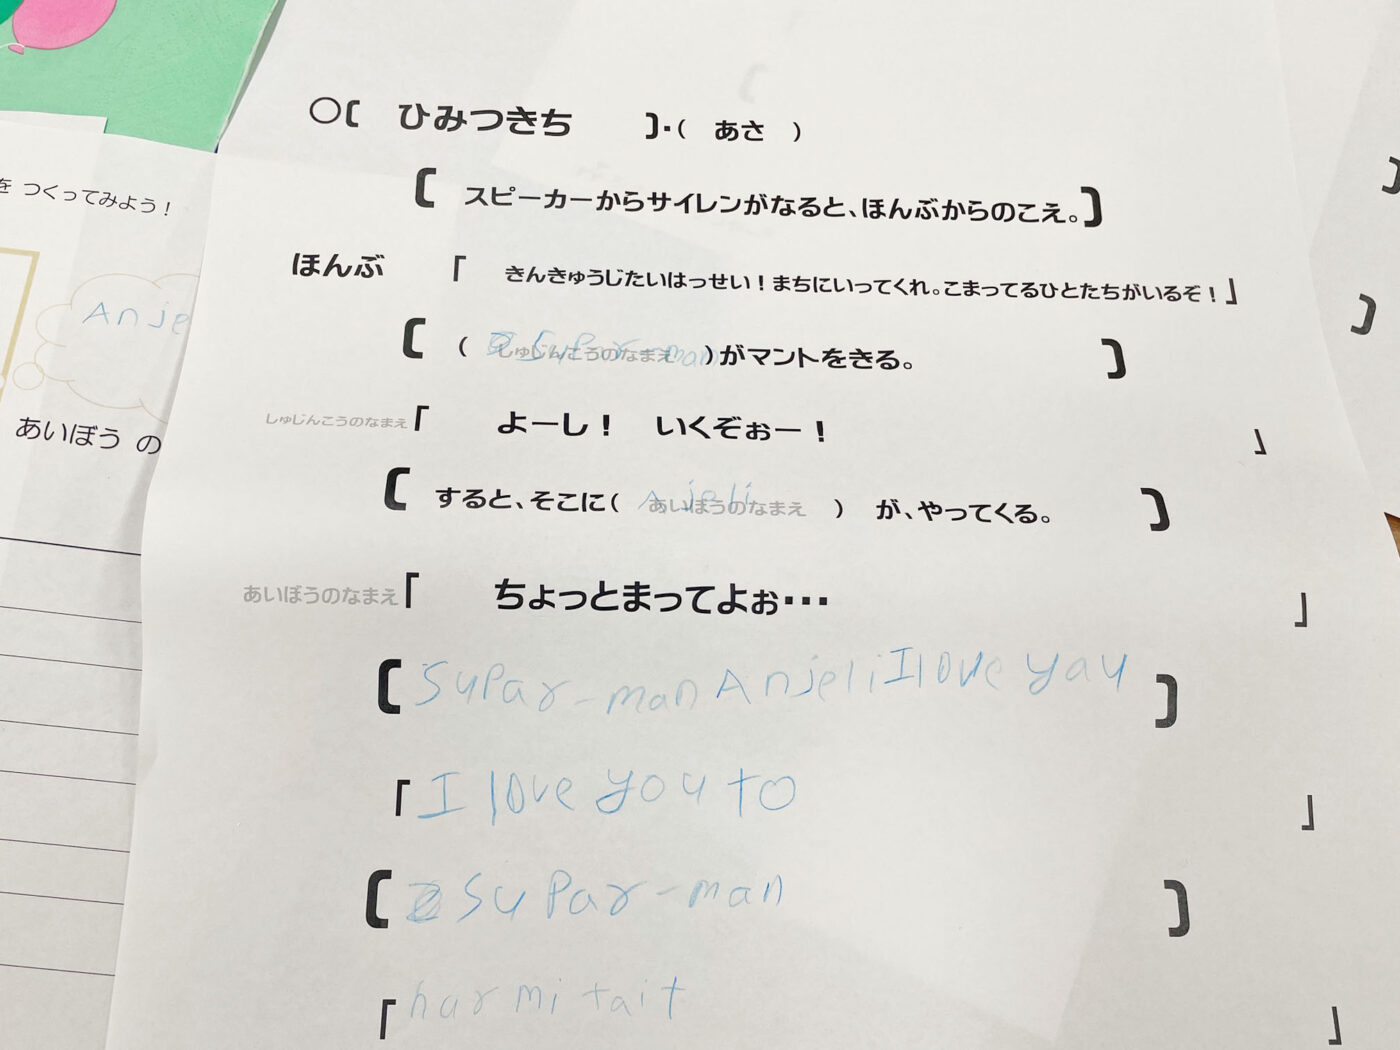 ○〔 ひみつきち 〕・( あさ )
〔 スピーカーからサイレンがなると、ほんぶからのこえ。〕
ほんぶ 「 きんきゅうじたいはっせい！まちにいってくれ。こまってるひとたちがいるぞ！」
〔 ( しゅじんこうのなまえ Supar-man )がマントをきる。 〕
しゅじんこうのなまえ「 よーし！ いくぞぉー！ 」
〔 すると、そこに( あいぼうのなまえ Anjeli ) が、やってくる。 〕
あいぼうのなまえ「 ちょっとまってよぉ・・・ 」
〔 Supar-man Anjeli I love yau 〕
「 I love you to 」
〔 Supar-man 〕
「 har mi tait 」
を つくってみよう！
Anje
あいぼう の